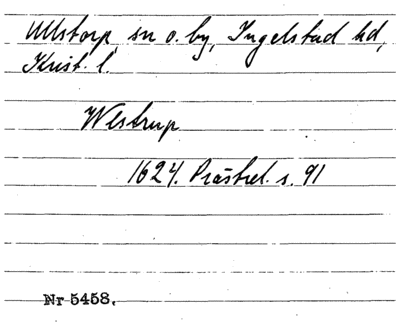 Ullstorp sn o. by, Ingelstad hd,
Krist. l.
Wlstrup
1624. Prästrel. s. 91
Nr 5458.